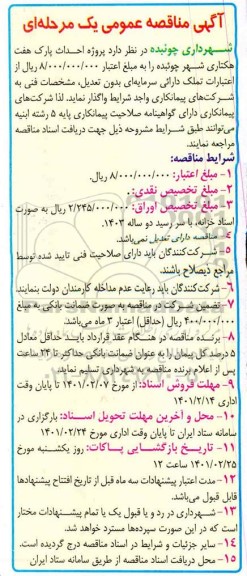 آگهی مناقصه عمومی یک مرحله‌ای
شهرداری چوئبده در نظر دارد پروژه احداث پارک هفت
هکتاری شهر چوئبده را به مبلغ اعتبار ۸/۰۰۰/۰۰۰/۰۰۰ ریال از
اعتبارات تملک دارائی سرمایه‌ای بدون تعدیل، مشخصات فنی به
شرکت‌های پیمانکاری واجد شرایط واگذار نماید. لذا شرکت‌های
پیمانکاری دارای گواهینامه صلاحیت پیمانکاری پایه ۵ رشته ابنیه
می‌توانند طبق شرایط مشروحه ذیل جهت دریافت اسناد مناقصه
مراجعه نمایند.
شرایط مناقصه:
۱- مبلغ اعتبار: ۸/۰۰۰/۰۰۰/۰۰۰ ریال.
۲- مبلغ تخصیص نقدی:.
۳- مبلغ تخصیص اوراق: ۲/۲۴۵/۰۰۰/۰۰۰ ریال به صورت
اسناد خزانه، با سر رسید دو ساله ۱۴۰۲.
۴- مناقصه دارای تعدیل نمی‌باشد.
۵- شرکت‌کنندگان باید دارای صلاحیت فنی تایید شده توسط
مراجع ذیصلاح باشند.
۶- شرکت‌کنندگان باید رعایت عدم مداخله کارمندان دولت بنمایند.
۷- تضمین شرکت در مناقصه به صورت ضمانت بانکی به مبلغ
۴۰۰/۰۰۰/۰۰۰ ریال (حداقل) اعتبار ۳ ماه می‌باشد.
۸- برنده مناقصه در هنگام عقد قرارداد باید حداقل معادل
۵ درصد کل پیمان را به عنوان ضمانت بانکی حداکثر تا ۲۴ ساعت
پس از اعلام برنده مناقصه به شهرداری تسلیم نماید.
۹- مهلت فروش اسناد: از مورخ ۱۴۰۱/۰۲/۰۷ تا پایان وقت
اداری ۱۴۰۱/۲/۱۴
۱۰- محل و آخرین مهلت تحویل اسناد: بارگزاری در
سامانه ستاد ایران تا پایان وقت اداری مورخ ۱۴۰۱/۰۲/۲۴
۱۱- تاریخ بازگشایی پاکات: روز یکشنبه مورخ
۱۴۰۱/۰۲/۲۵ ساعت ۱۲
۱۲- مدت اعتبار پیشنهادات سه ماه قبل از تاریخ افتتاح پیشنهادها
قابل قبول می‌باشد.
۱۳- شهرداری در رد و یا قبول یک یا تمام پیشنهادات مختار
است که در این صورت سپرده‌ها مسترد خواهد شد.
۱۴- سایر جزئیات و شرایط در اسناد مناقصه درج گردیده است.
۱۵- محل دریافت اسناد مناقصه از طریق سامانه ستاد ایران